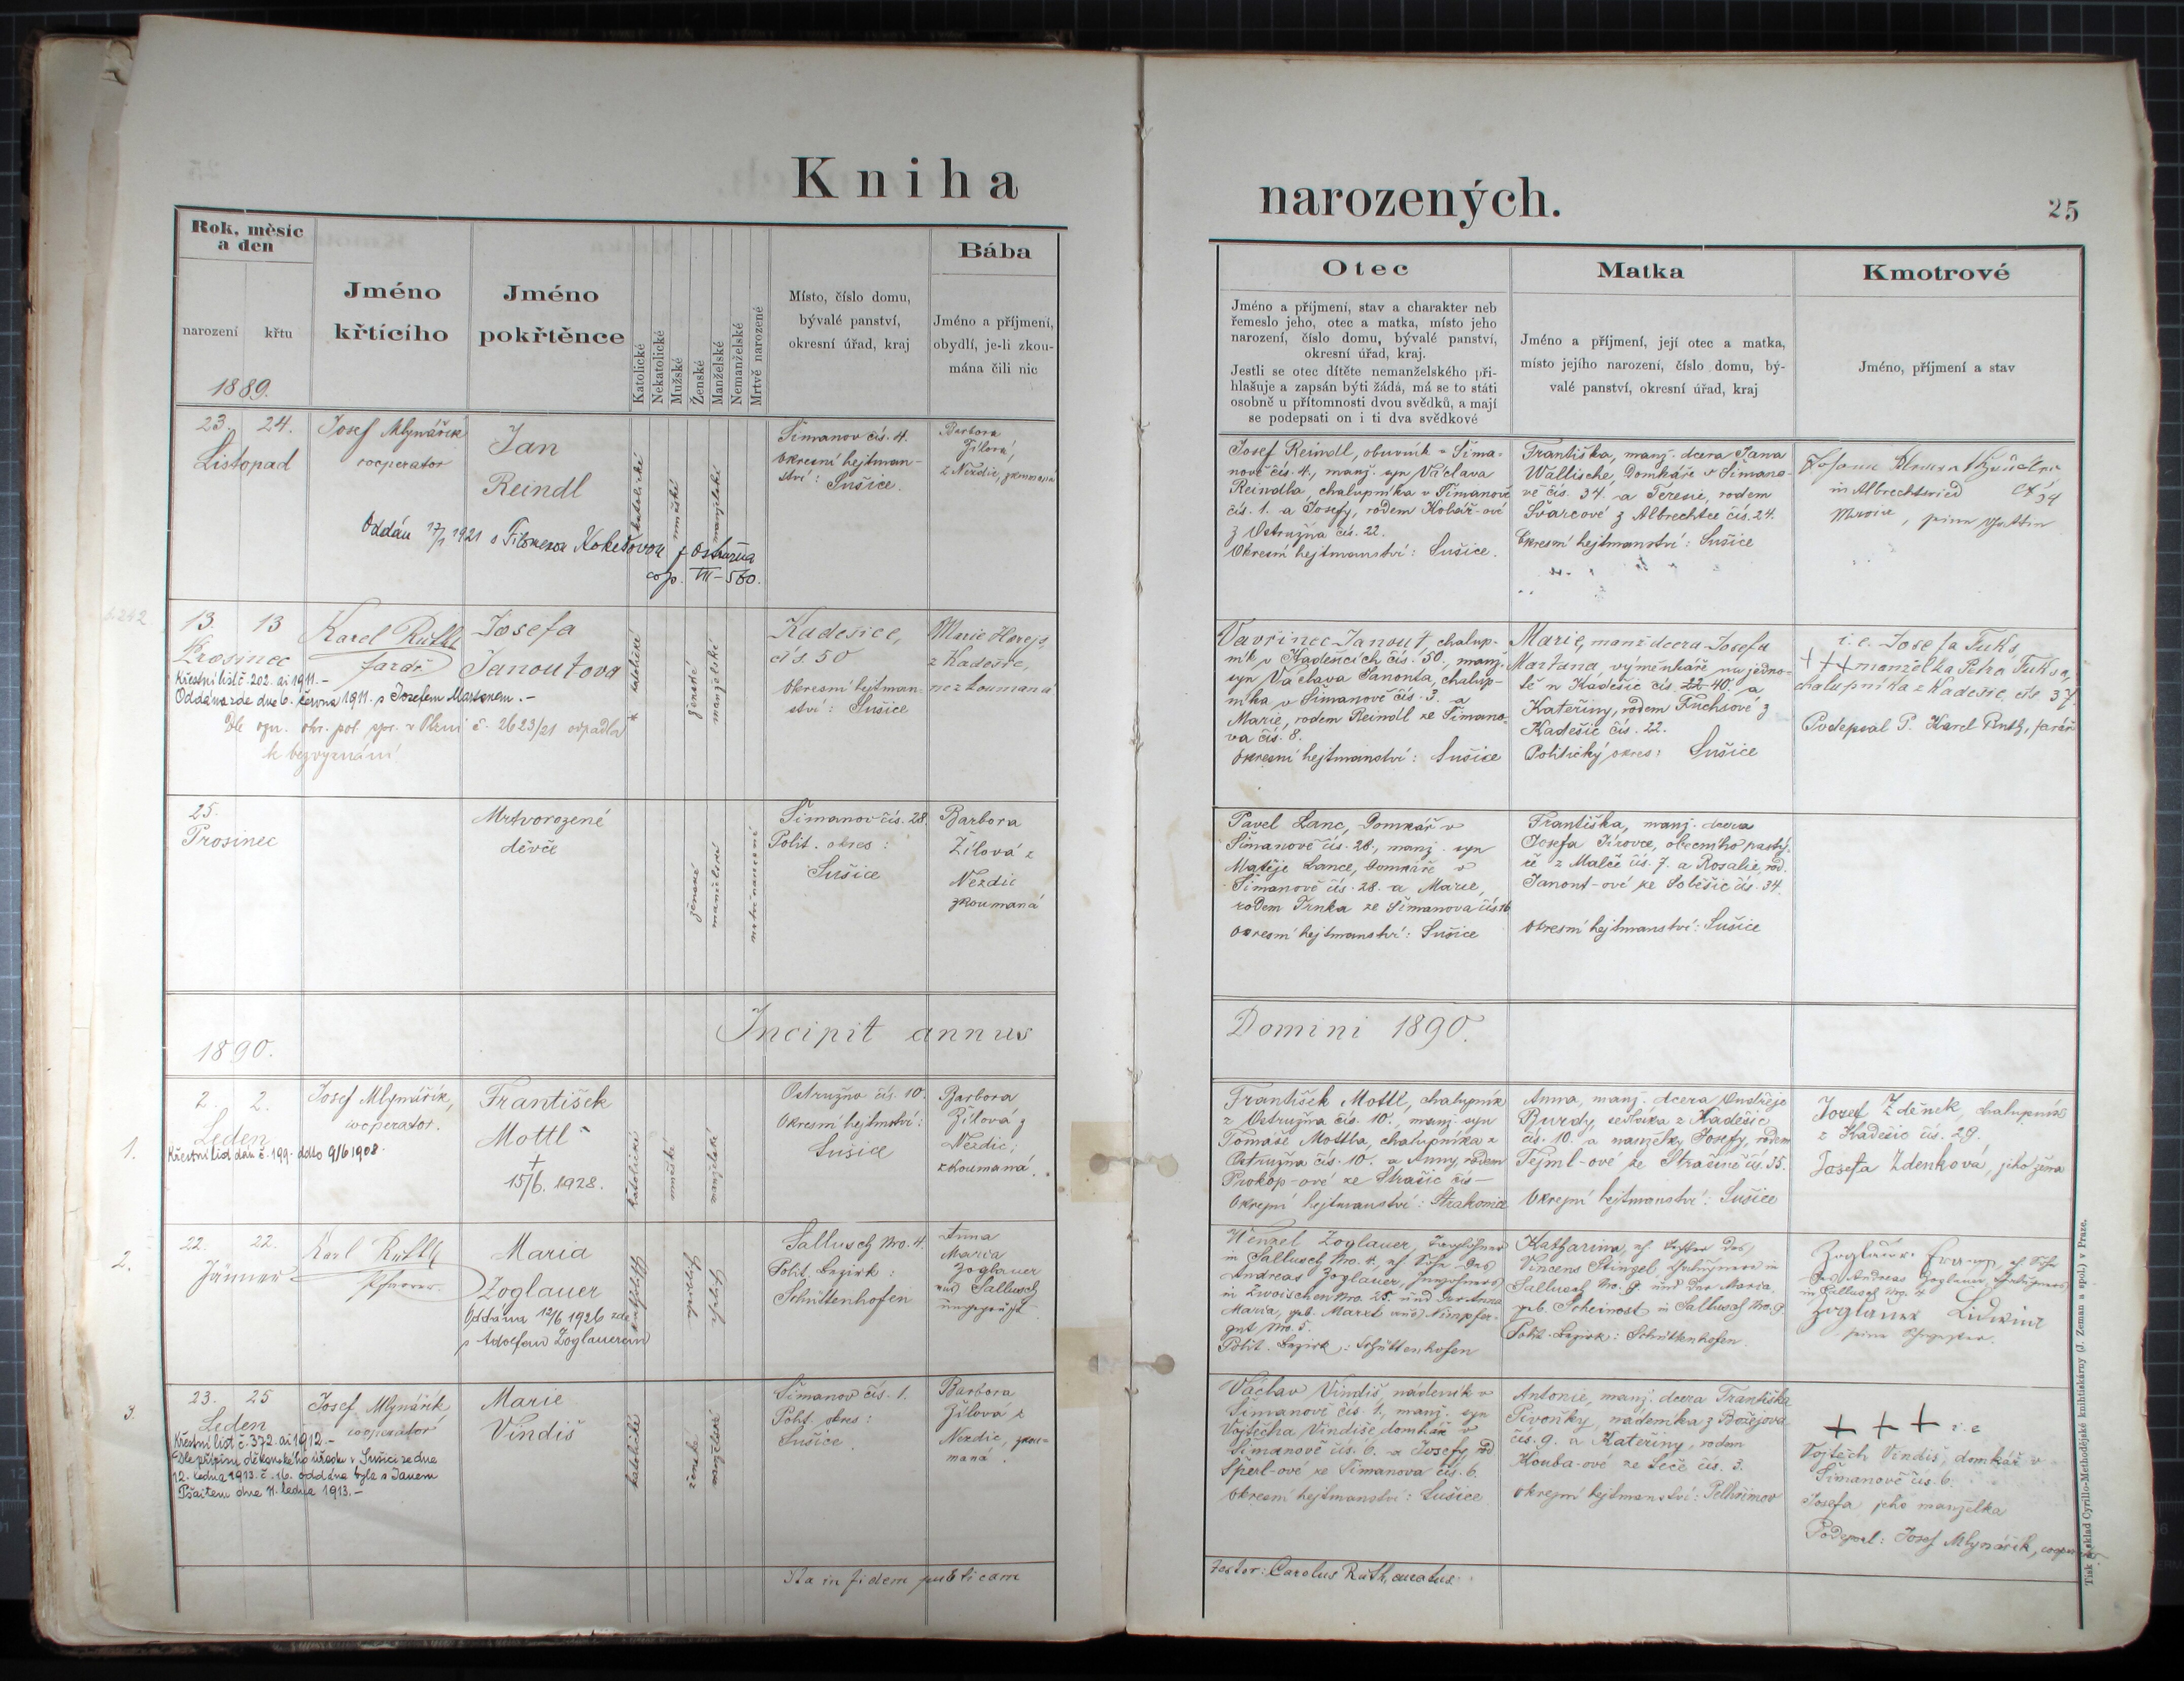 Kniha
narozených.
25
Rok, měsíc
a den
narození
křtu
1889.
Jméno
křtícího
Jméno
pokřtěnce
Katolické
Nekatolické
Mužské
Ženské
Manželské
Nemanželské
Mrtvě narozené
Místo, číslo domu,
bývalé panství,
okresní úřad, kraj
Bába
Jméno a příjmení,
obydlí, je-li zkou-
mána čili nic
Otec
Jméno a příjmení, stav a charakter neb
řemeslo jeho, otec a matka, místo jeho
narození, číslo domu, bývalé panství,
okresní úřad, kraj.
Jestli se otec dítěte nemanželského při-
hlašuje a zapsán býti žádá, má se to státi
osobně u přítomnosti dvou svědků, a mají
se podepsati on i ti dva svědkové
Matka
Jméno a příjmení, její otec a matka,
místo jejího narození, číslo domu, bý-
valé panství, okresní úřad, kraj
Kmotrové
Jméno, příjmení a stav
23. 24.
Listopad
Josef Mlynářík
cooperator
Jan
Reindl
Oddán 17/1 1921 s Kokešovou z Ostružna
cop. VII-560.
katolické
mužské
manželské
Šimanov čís. 4.
Okresní hejtman-
ství: Sušice.
Barbora
Žílová,
z Nezdic, zkoumaná
Josef Reindl, obuvník v Šima-
nově čís. 4., manj. syn Václava
Reindla, chalupníka v Šimanově
čís. 1. a Josefy, rodem Kobář-ové
z Ostružna čís. 22.
Okresní hejtmanství: Sušice.
Františka, manj. dcera Jana
Wallische, Domkáře v Šimano-
vě čís. 34. a Teresie, rodem
Švarcové z Albrechtce čís. 24.
Okresní hejtmanství: Sušice
Johann
in Albrechtsried 24
13. 13
Prosinec
Karel Ruthh
farář
Josefa
Janoutova
Křestní list č. 202. ai 1911.-
Oddána zde dne 6. června 1911. s Josefem Martanem.-
Dle ozn. okr. pol. spr. v Plzni č. 2623/21 odpadla
k bezvyznání
katolické
ženské
manželské
Kadešice,
čís. 50
Okresní hejtman-
ství: Sušice
Marie Herejs,
z Kadešic,
nezkoumaná
Vavřinec Janout, chalup-
ník v Kadešicích čís. 50., manj.
syn Václava Janouta, chalup-
níka v Šimanově čís. 3. a
Marie, rodem Reindl ze Šimano-
va čís. 8.
Okresní hejtmanství: Sušice
Marie, manž dcera Josefa
Martana, výměnkáře na jedno-
tě u Kadešic čís. 22 40. a
Kateřiny, rodem Fuchsové z
Kadešic čís. 22.
Politický okres: Sušice
i. e. Josefa Fuks,
+++ manželka Petra Fuksa,
chalupníka z Kadešic čís 37.
Podepsal P. Karel Ruth, farář
25.
Prosinec
Mrtvorozené
děvče
ženské
manželské
Šimanov čís. 28.
Polit. okres:
Sušice
Barbora
Žílová z
Nezdic
zkoumaná
Pavel Lanc, Domkář v
Šimanově čís. 28., manj. syn
Matěje Lance, Domkáře v
Šimanově čís. 28. a Marie,
rodem Trnka ze Šimanova čís. 16
Okresní hejtmanství: Sušice
Františka, manj. dcera
Josefa Jírovce, obecního pastý-
ře z Malče čís. 7. a Rosalie, rod.
Janout-ové ze Soběšic čís. 34.
Okresní hejtmanství: Sušice
1890.
Incipit annus
Domini 1890.
1.
2. 2.
Leden
Křestní list dán č. 199. ddto 9/6 1908.
Josef Mlynářík,
cooperator.
František
Mottl
+
15/6. 1928.
katolické
mužské
manželské
Ostružno čís. 10.
Okresní hejtmství:
Sušice
Barbora
Žílová z
Nezdic;
zkoumaná.
František Mottl, chalupník
z Ostružna čís. 10., manj. syn
Tomáše Mottla, chalupníka z
Ostružna čís. 10. a Anny, rodem
Prokop-ové ze Strašic čís -
Okresní hejtmanství: Strakonice
Anna, manj. dcera Ondřeje
Burdy, sedláka z Kadešic
čís. 10. a manželky Josefy, rodem
Tejml-ové ze Strašína čís. 35.
Okresní hejtmanství: Sušice
Jozef Zdeněk, chalupník
z Kadešic čís. 29.
Josefa Zdenková, jeho žena
2.
22. 22.
Jänner
Karl Ruthh
Pfarrer.
Maria
Zoglauer
Oddána 12/6 1926 zde
s Adolfem Zoglauerem
katholisch
weiblich
ehelich
Sallusch Nro. 4.
Polit. Bezirk:
Schüttenhofen
Anna
Maria
Zoglauer
aus Sallusch
ungeprüft
Wenzel Zoglauer,
in Sallusch Nro. 4., eh. Sohn des
Andreas Zoglauer,
in Zwoischen Nro. 25. und der Anna
Maria, geb. Marek aus Nimpfer-
gut Nro. 5.
Polit. Bezirk: Schüttenhofen
Katharina, eh. Tochter des
Vincens Stinzel, in
Sallusch Nro. 9. und der Maria,
geb. Scheinost in Sallusch Nro. 9
Polit. Bezirk: Schüttenhofen
Zoglauer Franz, eh. Sohn
des Andreas Zoglauer,
in Sallusch Nro. 4
Zoglauer Lidwina
seine
3.
23. 25
Leden
Křestní list č. 372. ai 1912.-
Dle přípisu děkanského úřadu v Sušici ze dne
12. ledna 1913. č. 16. oddána byla s Janem
dne 11. ledna 1913.-
Josef Mlynářík
cooperator
Marie
Vindiš
katolické
ženské
manželské
Šimanov čís. 1.
Polit. okres:
Sušice.
Barbora
Žílová z
Nezdic, zkou-
maná.
Václav Vindiš, nádeník v
Šimanově čís. 1., manj. syn
Vojtěcha Vindiše, domkář v
Šimanově čís. 6. a Josefy, rod
Šperl-ové ze Šimanova čís. 6.
Okresní hejtmanství: Sušice
Antonie, manj. dcera Františka
Pivoňky, nádeníka z Božejova
čís. 9. a Kateřiny, rodem
Kouba-ové ze Seče čís. 3.
Okresní hejtmanství: Pelhřimov
+ + + i. e
Vojtěch Vindiš, domkář v
Šimanově čís. 6.
Josefa jeho manželka
Podepsal: Josef Mlynářík, cooperator
Ita in fidem publicam
testor: Carolus Ruth, curatus.
Tisk a náklad Cyrillo-Methodějské knihtiskárny (J. Zeman a spol.) v Praze.